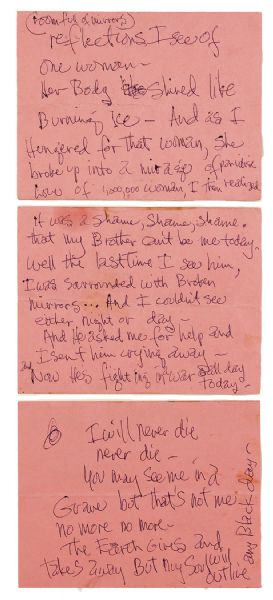 (roomful of mirrors)
reflections I see of
one woman-
Her Body shined like
Burning Ice - And as I
Hungered for that woman, she
broke up into a mirage of paradise
of 4,000,000 woman, I then realized
it was a shame, shame, shame.
that my Brother cant be me today-
well the last time I see him,
I was surrounded with Broken
mirrors... And I couldnt see
either night or day -
And He asked me for help and
I sent him crying away -
And Now Hes fighting in war all day
today -
I will never die
never die -
You may see me in a
Grave but that's not me
no more no more -
The Earth Gives and
takes away But my soul will
outlive any Black day -